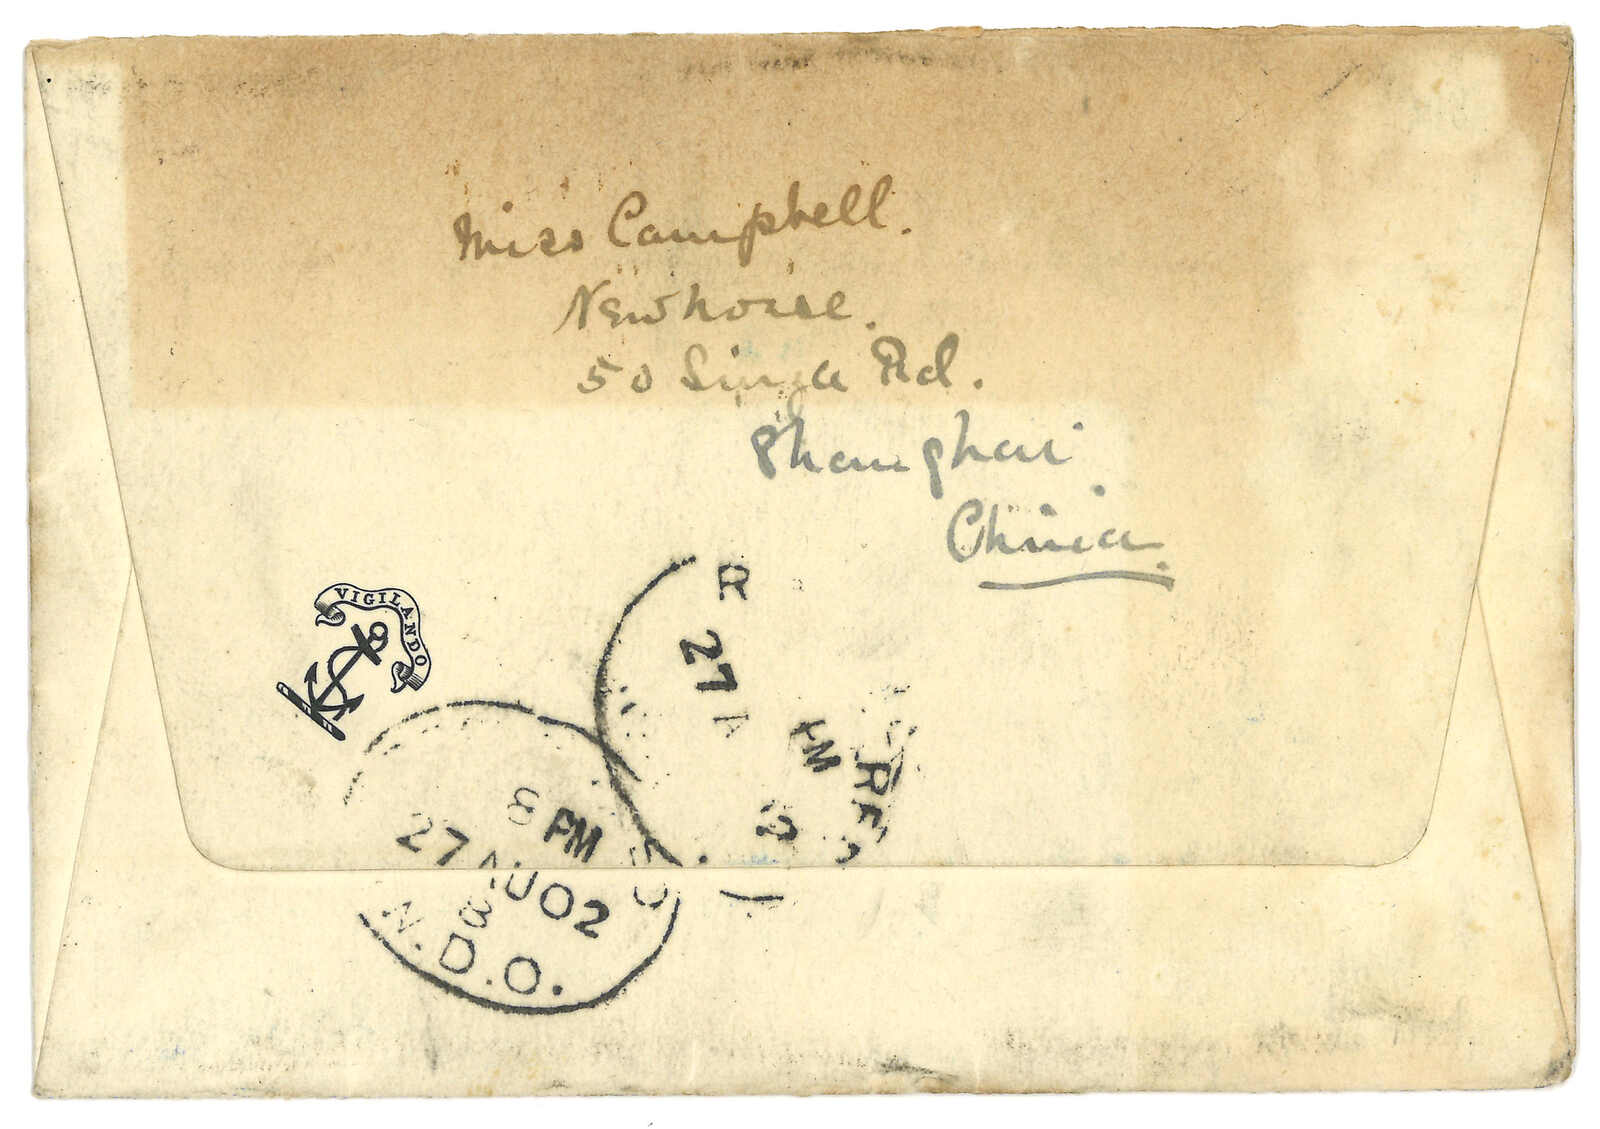 Miss Campbell.
Newhouse.
50 Sinza Rd.
Shanghai
China
VIGILANDO
R
27 A
PM
8 PM
27 AU 02
N.D.O.